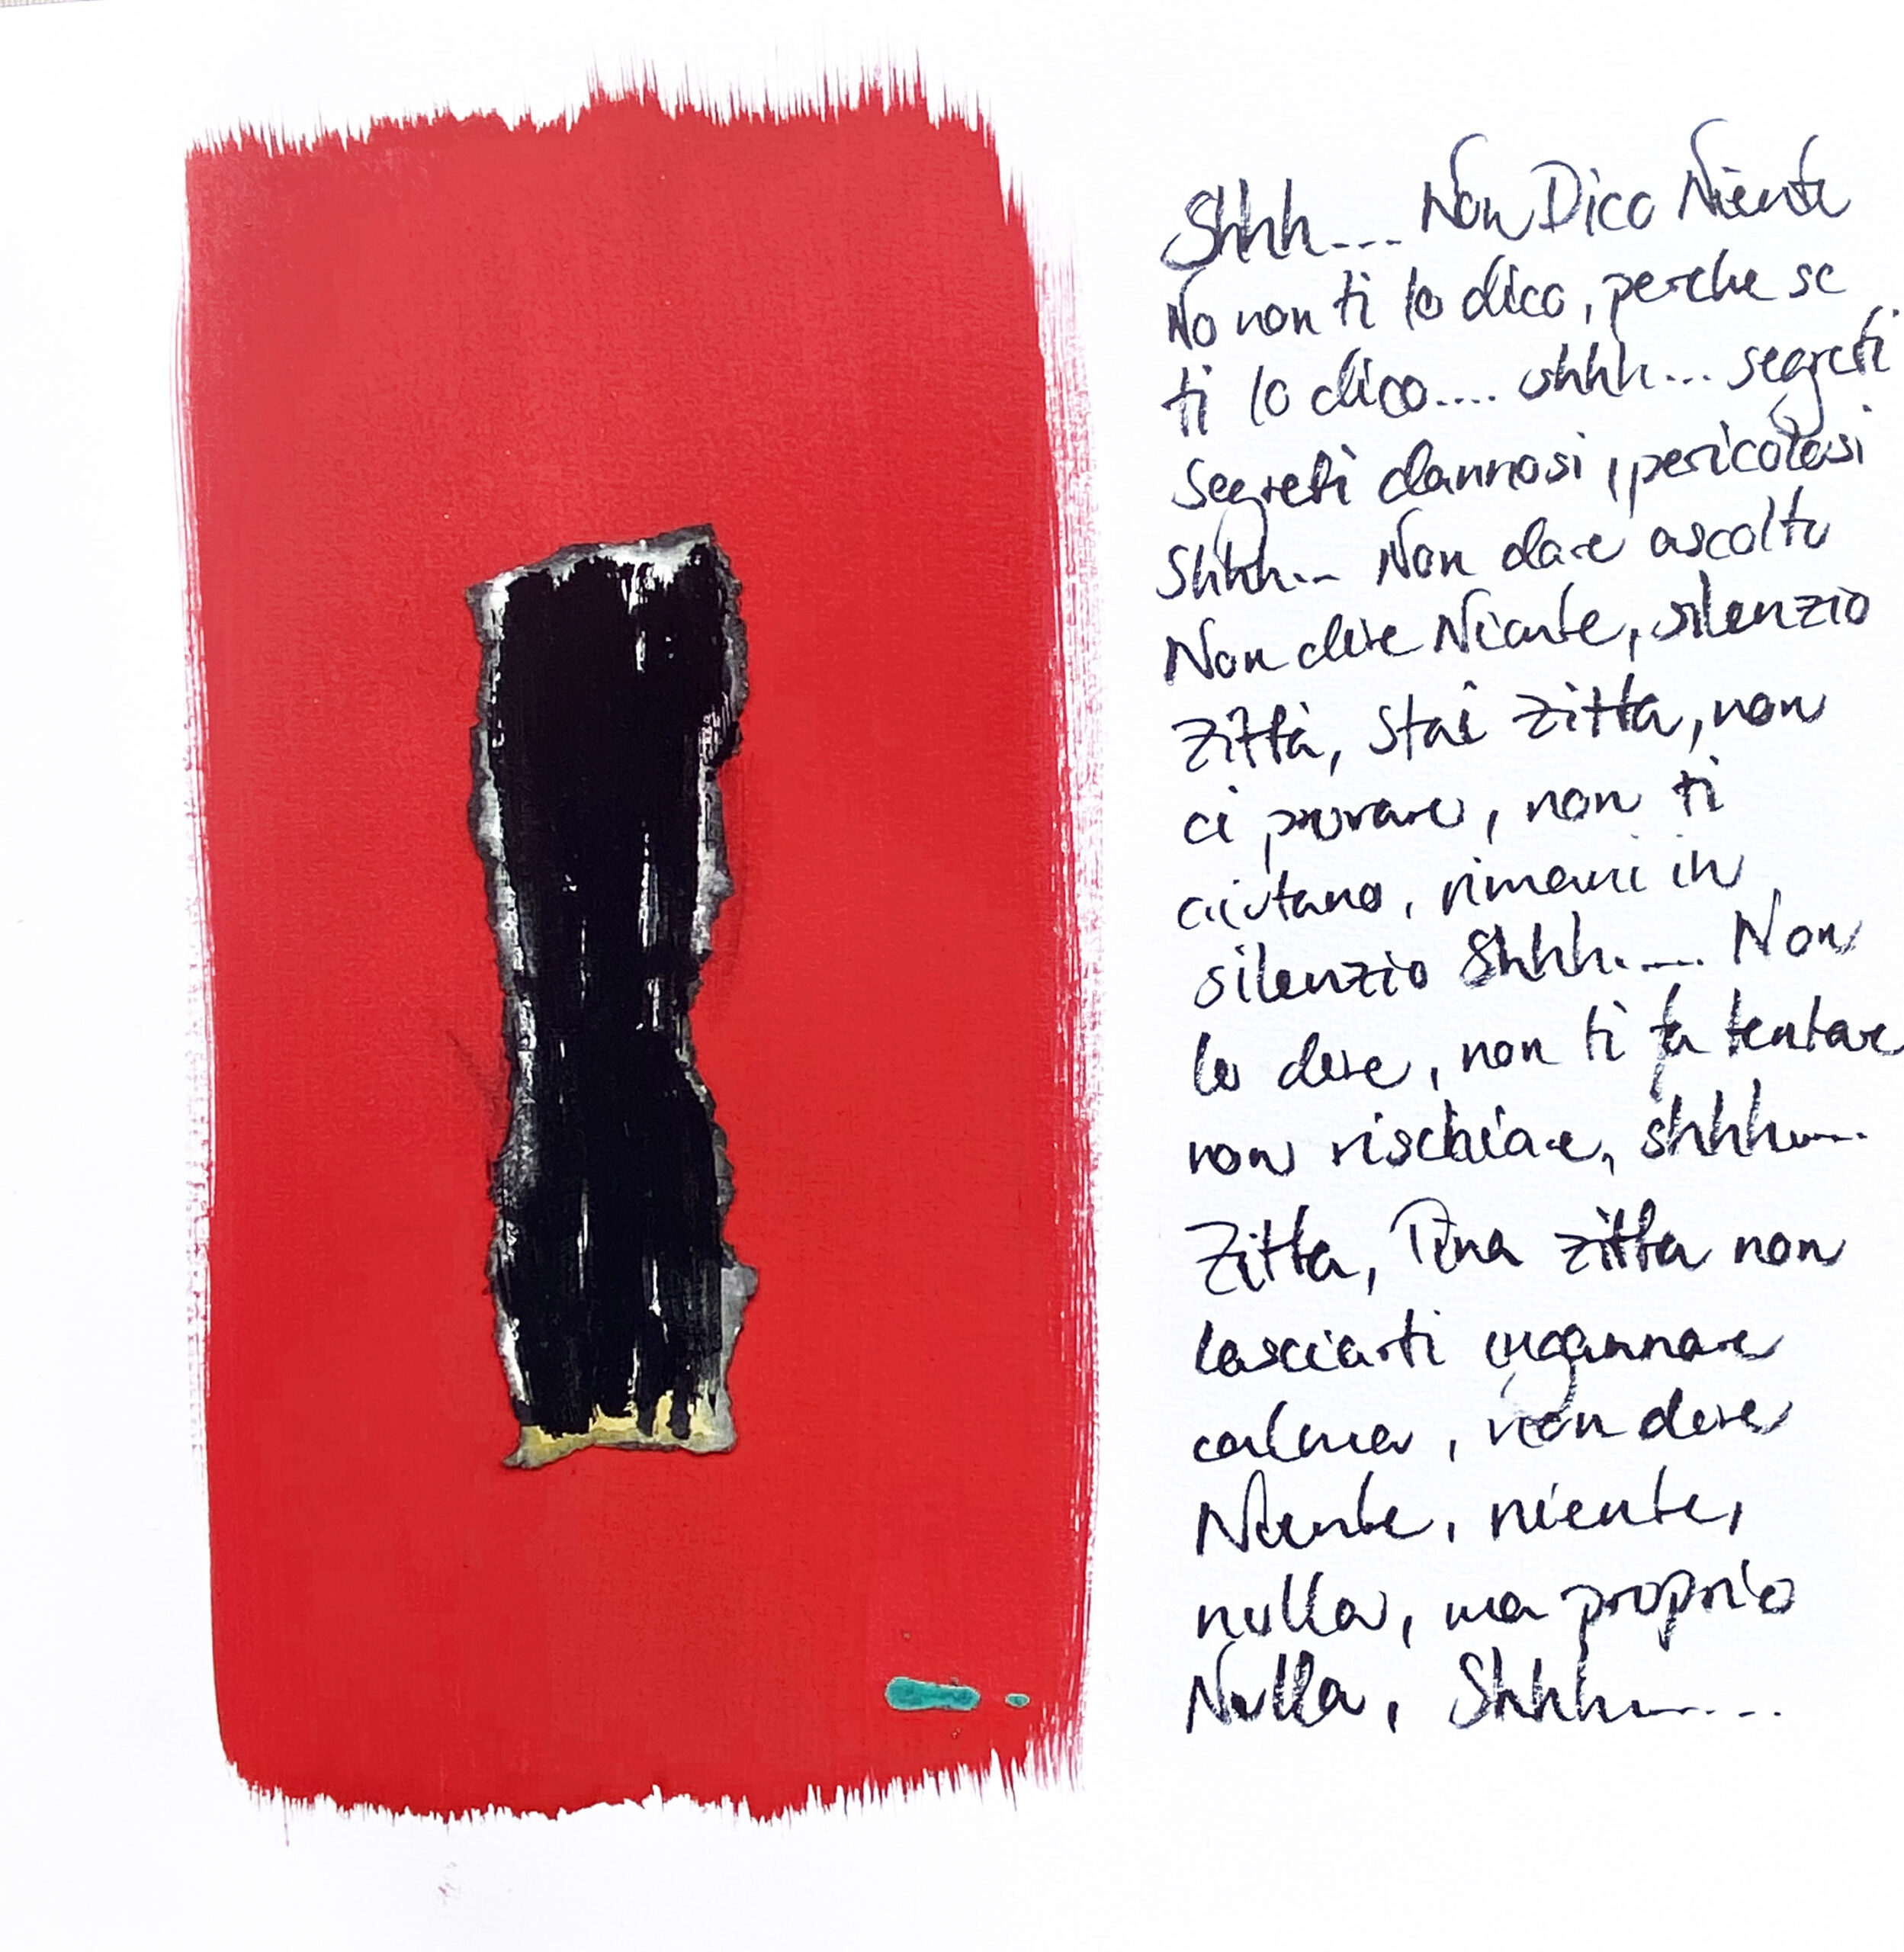 Shhh.... Non Dico Niente
No non ti lo dico, perche se
ti lo dico.... shhh... segreti
segreti dannosi, pericolosi
Shhh... Non dare ascolto
Non dire Niente, silenzio
zitta, stai zitta, non
ci provare, non ti
aiutano, rimani in
silenzio Shhh..... Non
lo dire, non ti fa tentare
non rischiare, shhh....
Zitta, Tina zitta non
lasciarti ingannare
calma, non dire
Niente, niente,
nulla, ma proprio
Nulla, Shhh.......